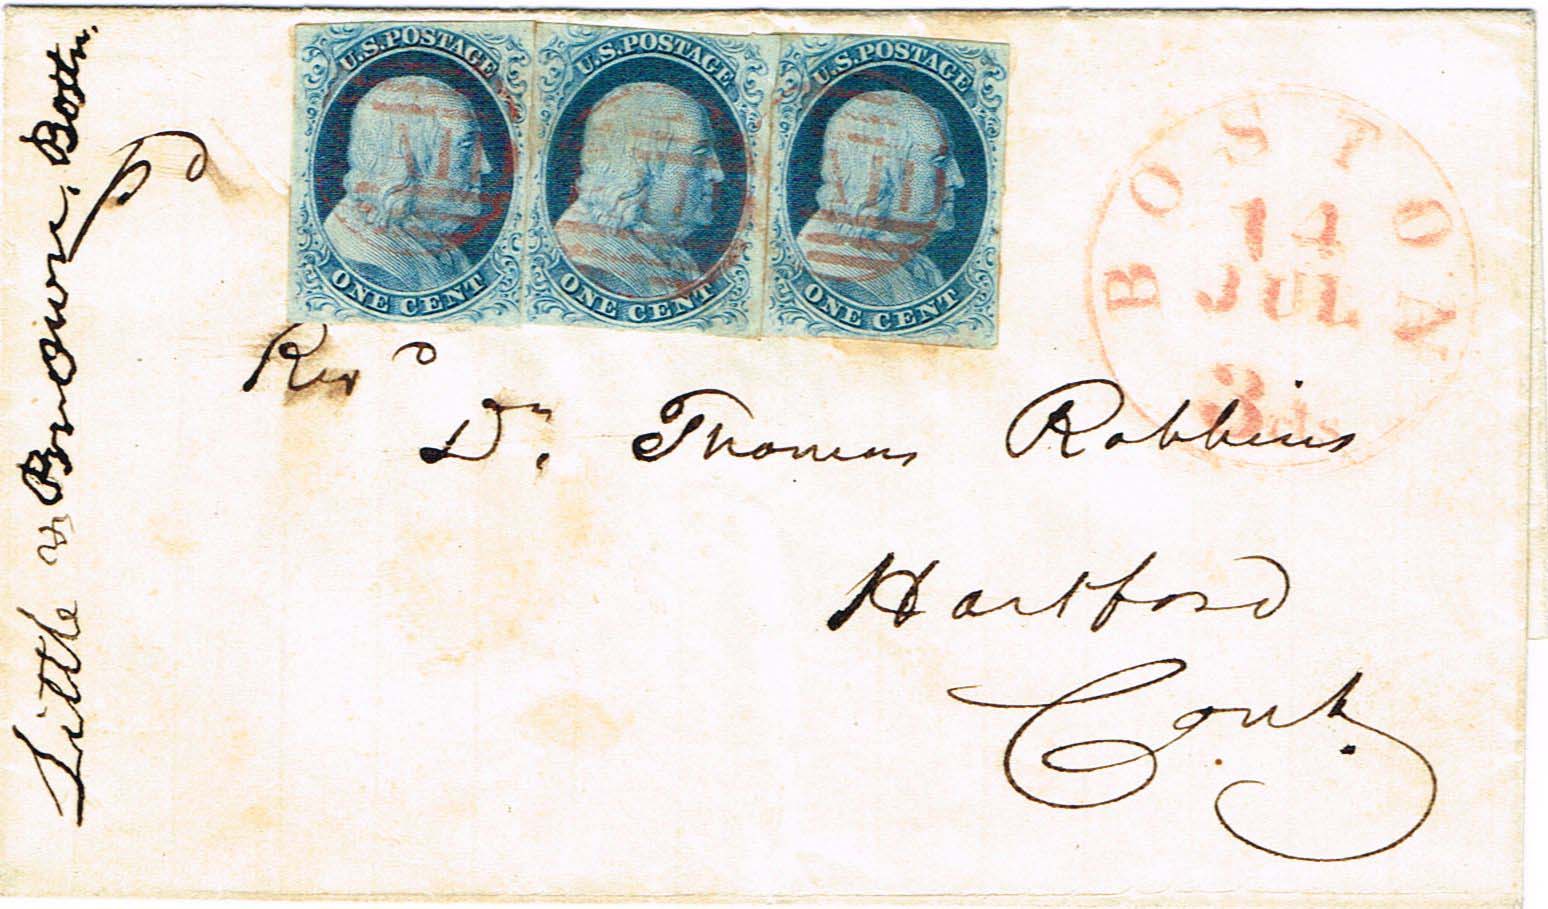 U.S.POSTAGE
ONE CENT
U.S.POSTAGE
ONE CENT
U.S.POSTAGE
ONE CENT
PAID
PAID
PAID
BOSTON
14
JUL
3 cts
Little & Brown, Boston.
pd
Revd
Dr. Thomas Robbins
Hartford
Cont.